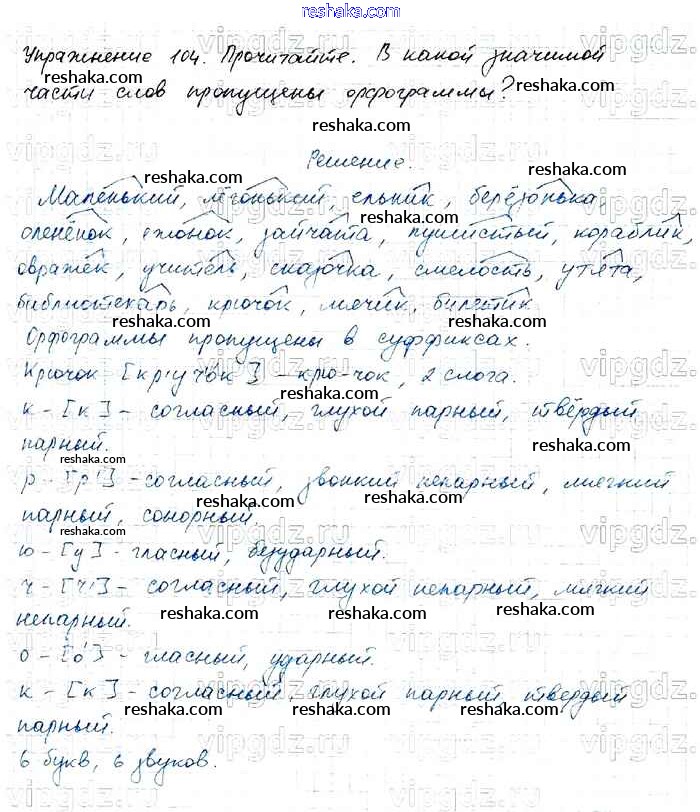 reshaka.com
Упражнение 104. Прочитайте. В какой значимой
reshaka.com reshaka.com
части слов пропущены орфограммы?
reshaka.com
Решение.
reshaka.com
Маленький, лёгонький, ельник, берёзонька,
reshaka.com
оленёнок, ежонок, зайчата, пушистый, кораблик,
овражек, учитель, сказочка, смелость, утята,
reshaka.com reshaka.com reshaka.com
библиотекарь, крючок, мячик, билетик.
reshaka.com
Орфограммы пропущены в суффиксах.
Крючок [кр'уч'о́к] – крю-чок, 2 слога.
reshaka.com
к – [к] – согласный, глухой парный, твёрдый
парный.
reshaka.com
reshaka.com
р – [р'] – согласный, звонкий непарный, мягкий
reshaka.com reshaka.com
парный, сонорный.
reshaka.com
ю – [у] – гласный, безударный.
reshaka.com
ч – [ч'] – согласный, глухой непарный, мягкий
reshaka.com reshaka.com reshaka.com
непарный.
о – [о́] – гласный, ударный.
reshaka.com
к – [к] – согласный, глухой парный, твердый
reshaka.com reshaka.com reshaka.com
парный.
6 букв, 6 звуков.
reshaka.com
vipgdz.ru